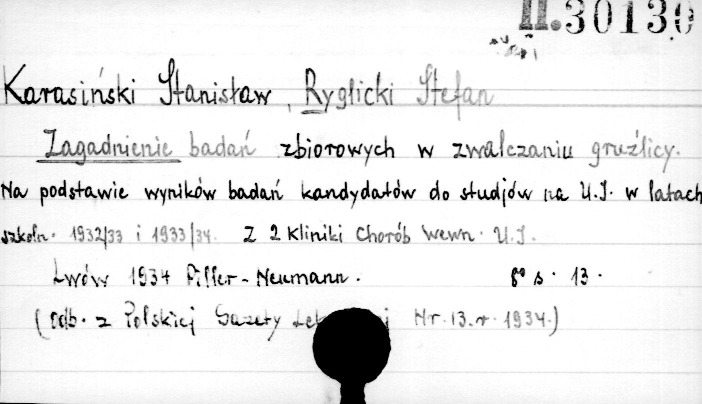 II.30130
Karasiński Stanisław, Ryglicki Stefan
Zagadnienie badań zbiorowych w zwalczaniu gruźlicy.
Na podstawie wyników badań kandydatów do studjów na U.J. w latach
szkoln. 1932/33 i 1933/34. Z 2 Kliniki Chorób Wewn. U.J.
Lwów 1934 Piller-Neumann. 8° s. 13.
(Odb. z Polskiej Gazety Nr. 13. r. 1934.)